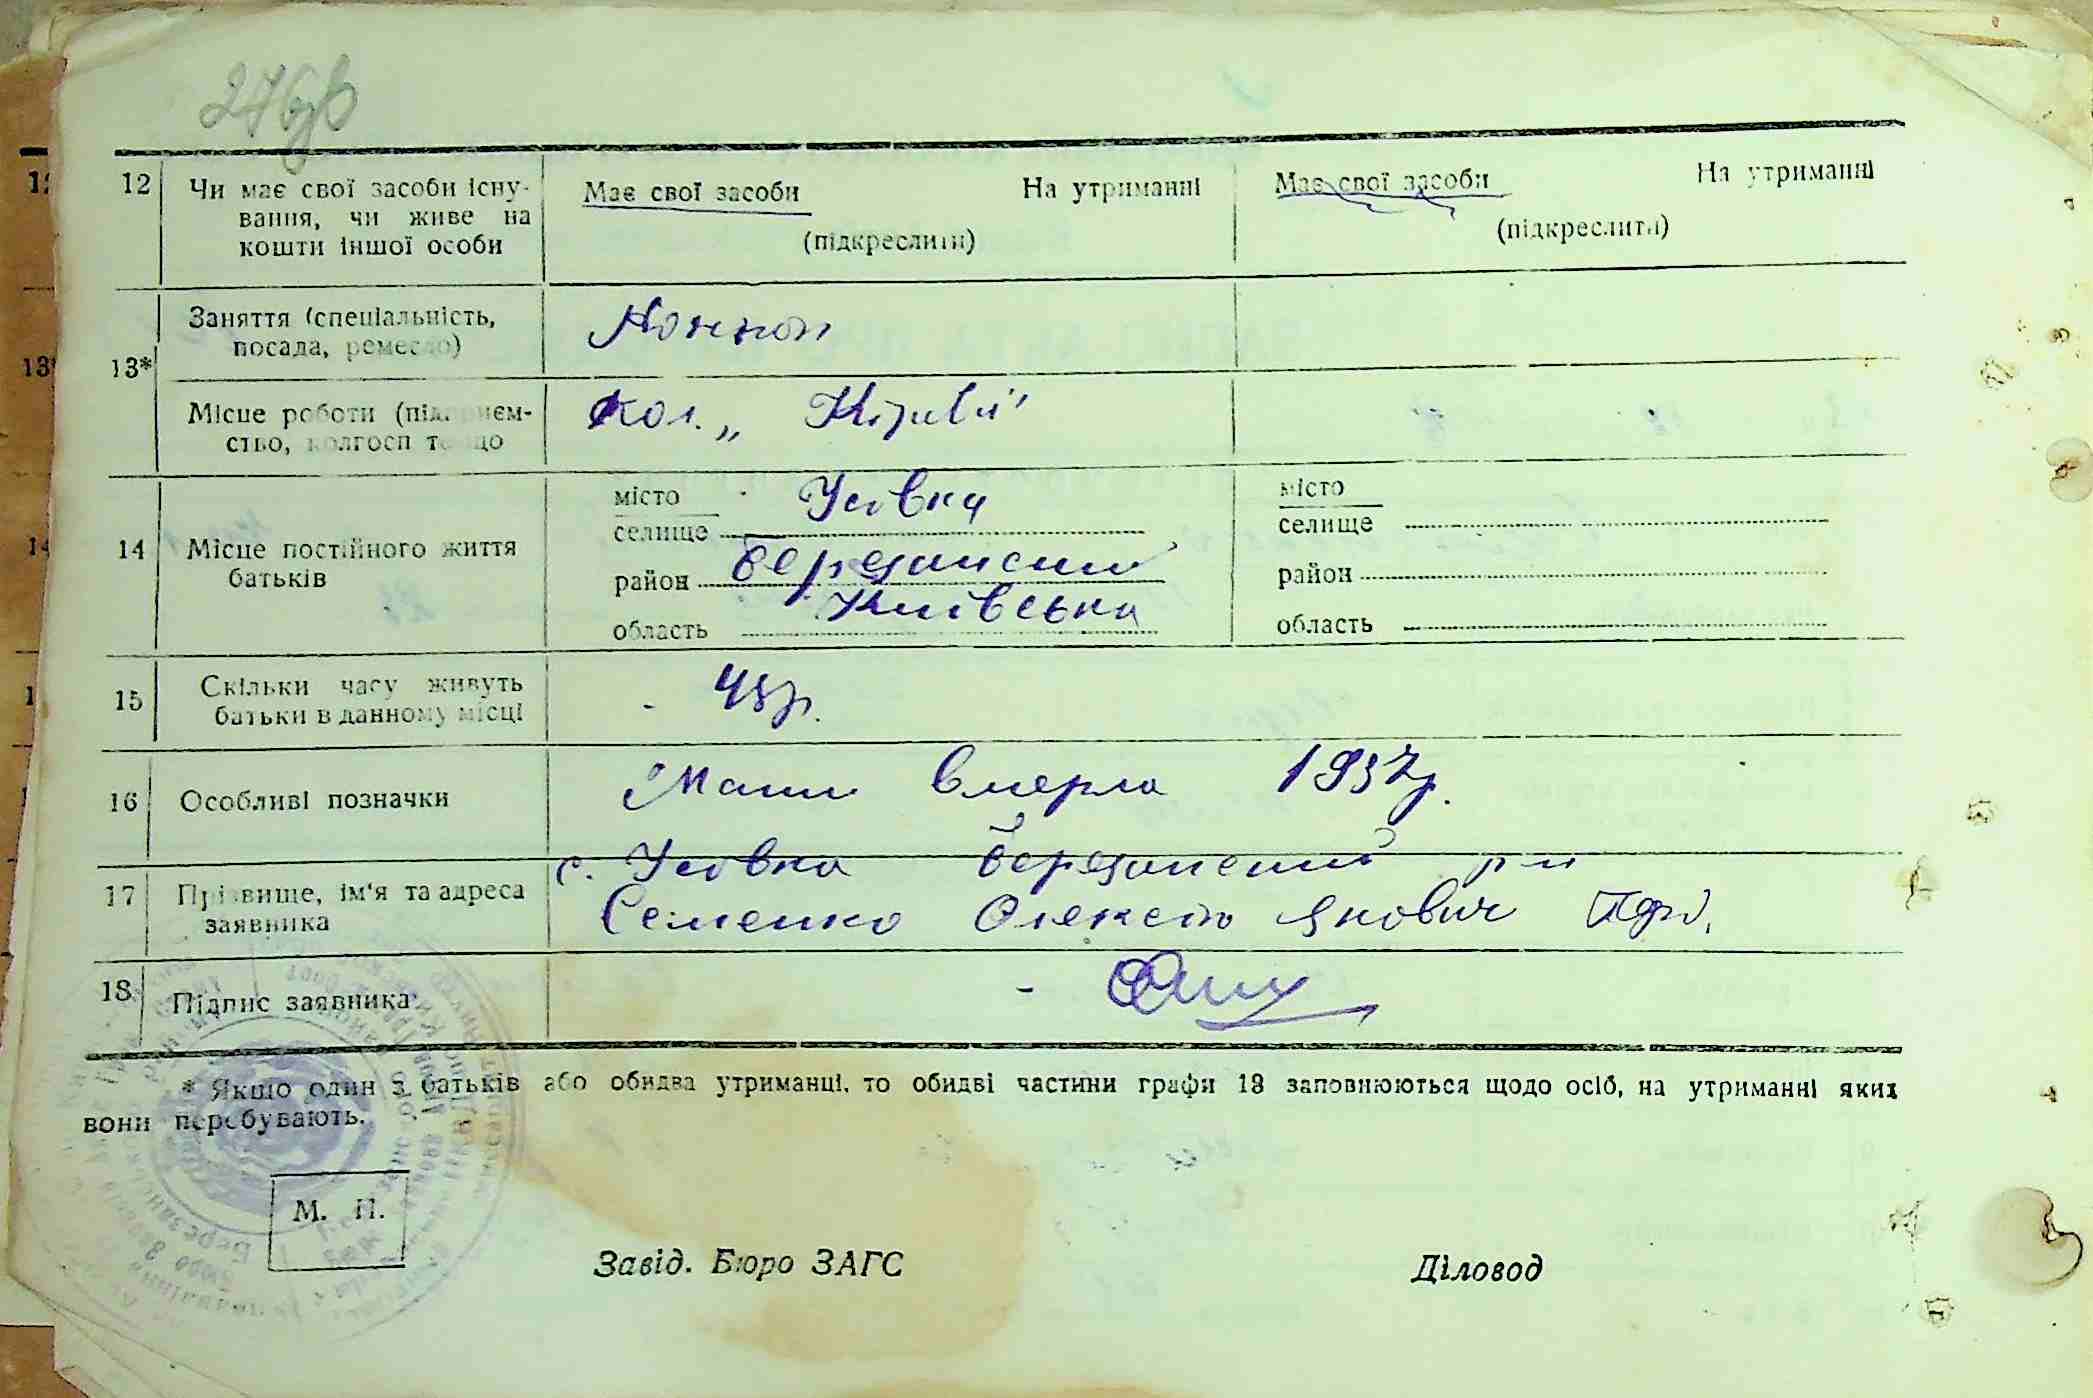 276зв
12 Чи має свої засоби існу- Має свої засоби На утриманні Має свої засоби На утриманні
вання, чи живе на
кошти іншої особи (підкреслити) (підкреслити)
Заняття (спеціальність,
посада, ремесло)
13*
Місце роботи (підприєм- Кол. „
ство, колгосп тощо
14 Місце постійного життя
батьків
місто Усівка місто
селище селище
район Березанський район
область Київська область
15 Скільки часу живуть 45р.
батьки в данному місці
16 Особливі позначки Мати вмерла 1937р.
с. Усівка Березанский р-н
17 Прізвище, ім'я та адреса
заявника Семенко Олексій Якович
18 Підпис заявника
* Якщо один з батьків або обидва утриманці, то обидві частини графи 13 заповнюються щодо осіб, на утриманні яких
вони перебувають.
М. П.
Завід. Бюро ЗАГС Діловод